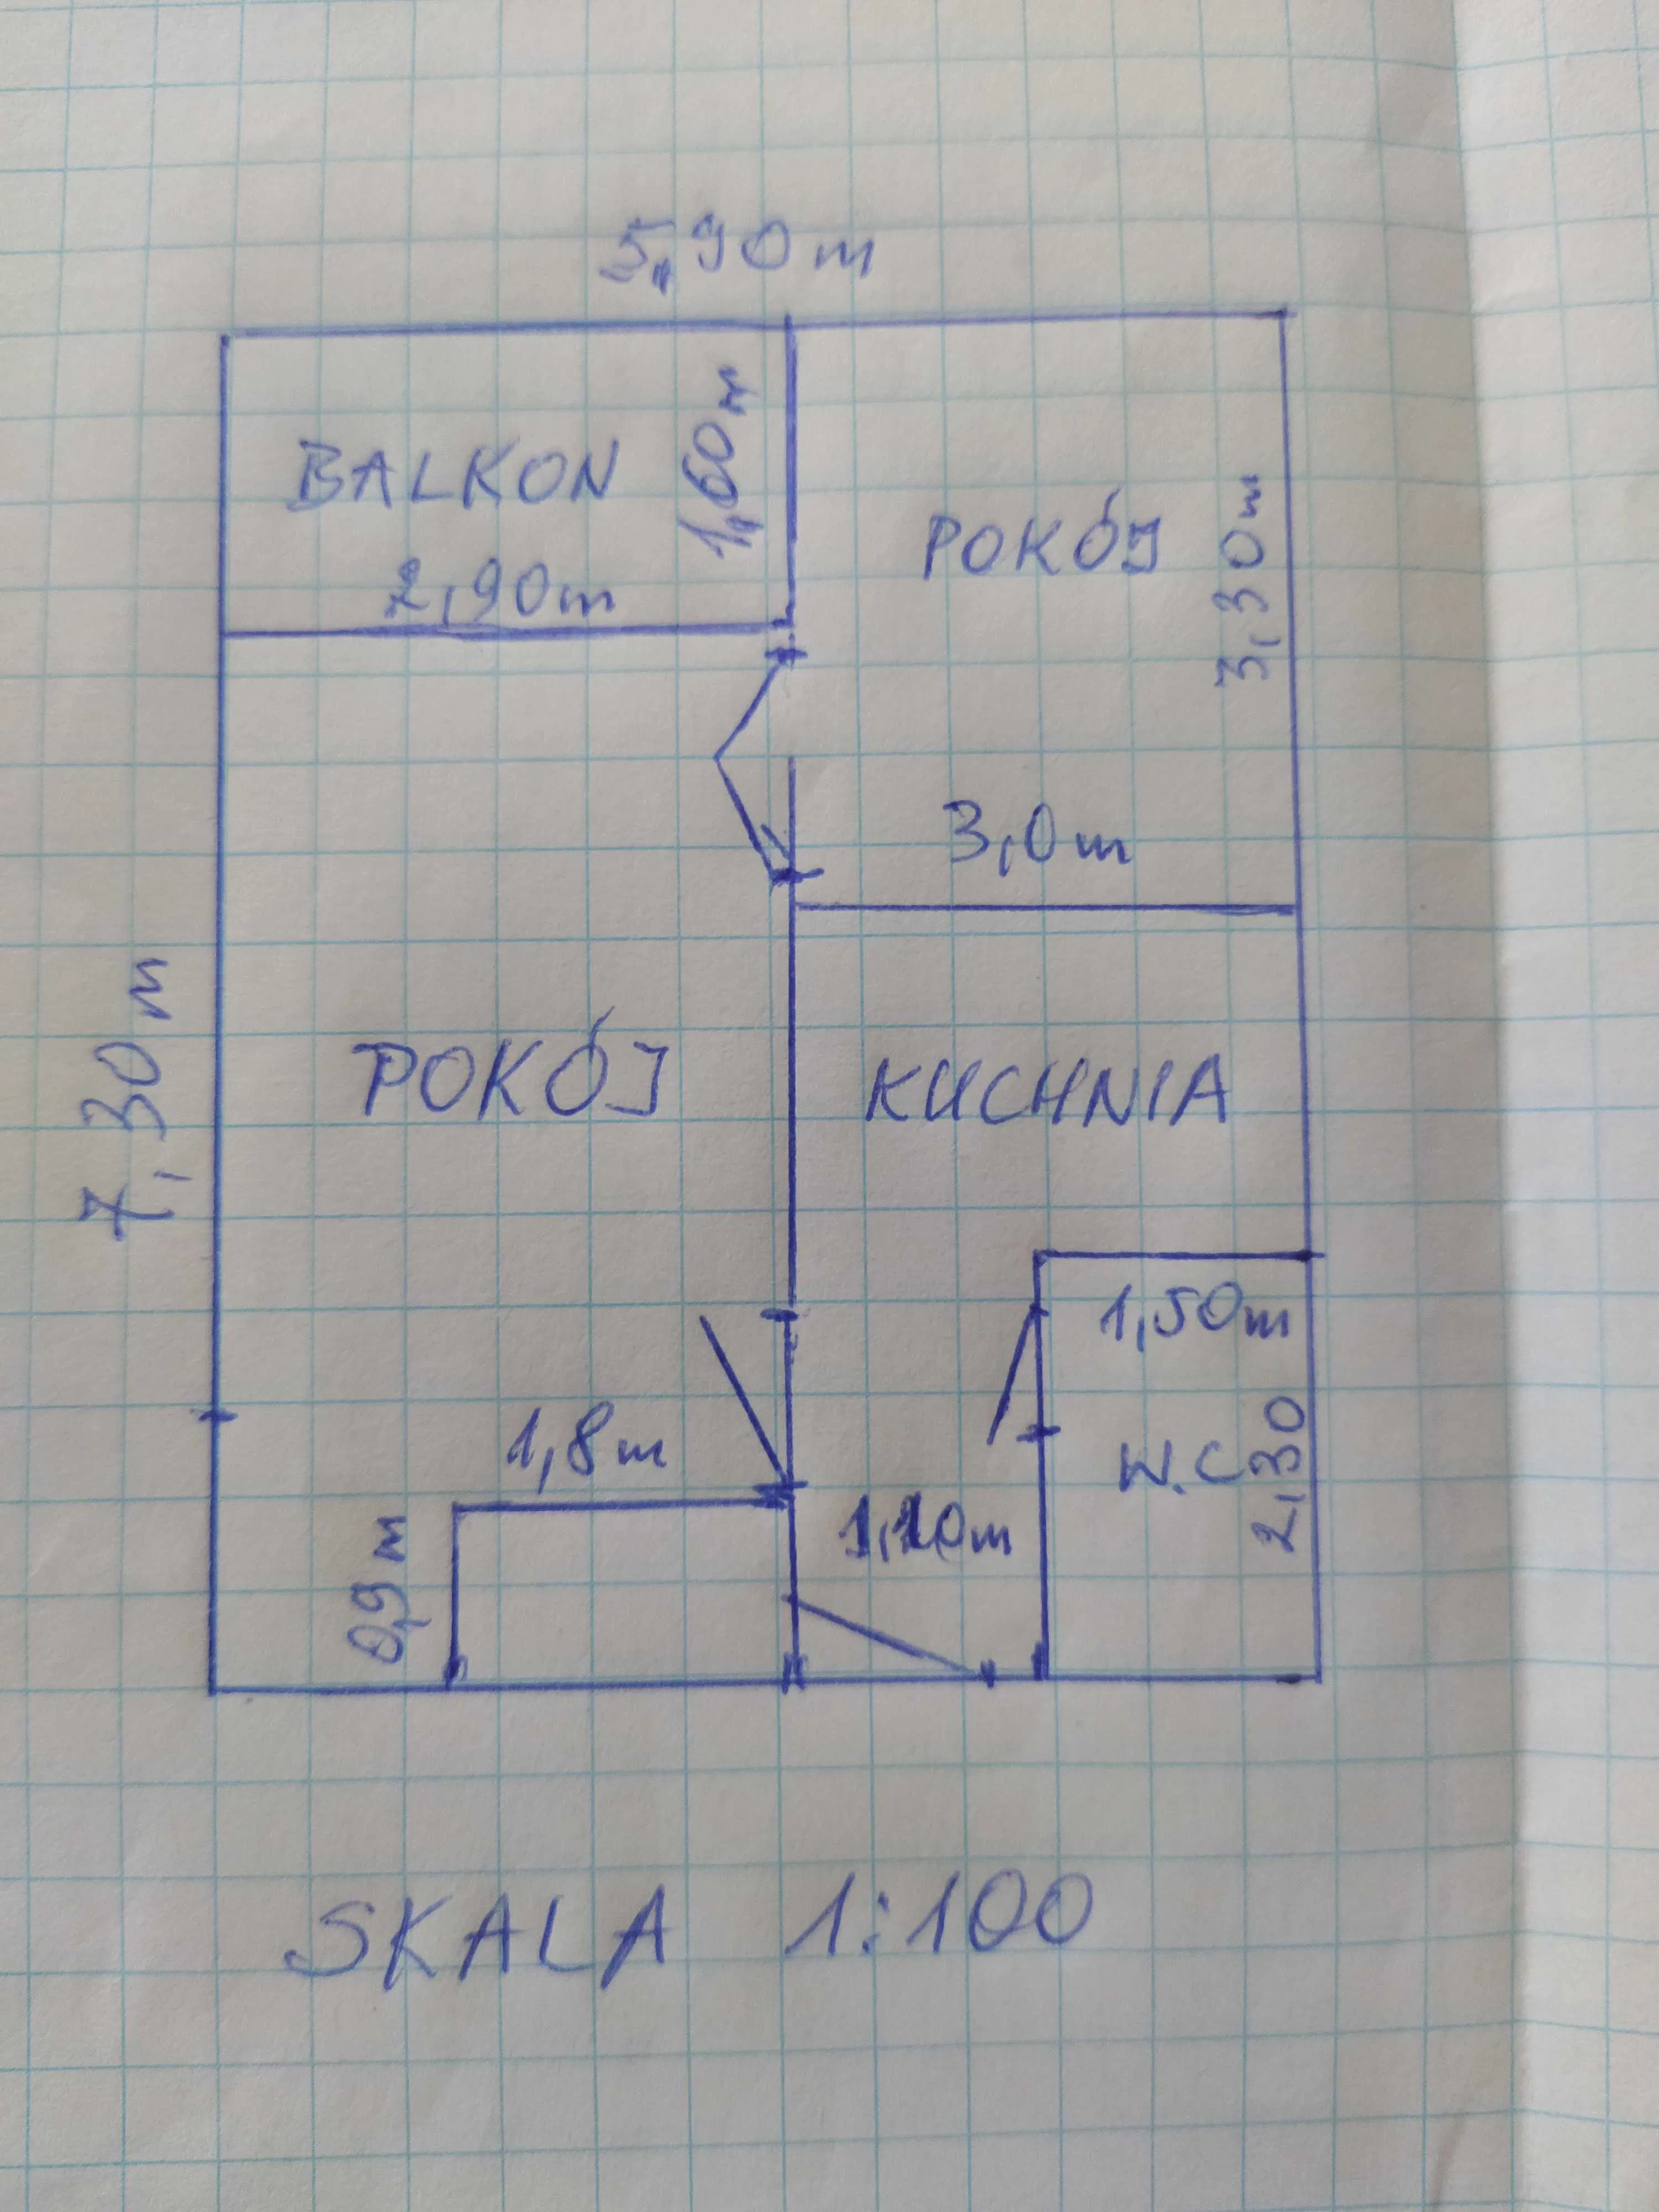 5,90m
BALKON
1,60m
2,90m
POKÓJ
3,30m
3,0m
7,30m
POKÓJ
KUCHNIA
1,50m
W.C
2,30
1,8m
0,9m
SKALA 1:100